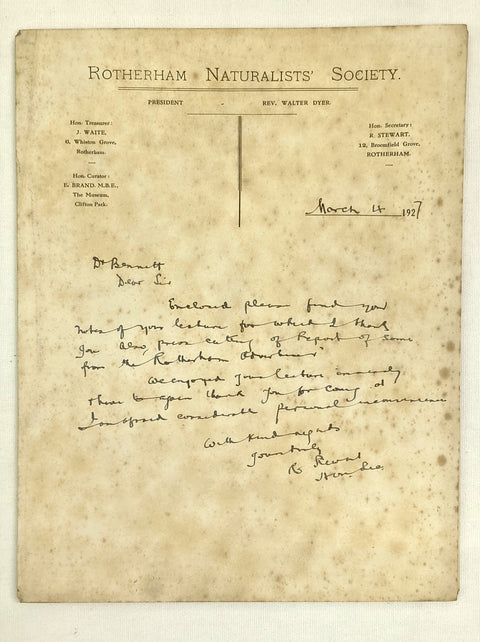 ROTHERHAM NATURALISTS' SOCIETY.
PRESIDENT REV. WALTER DYER.
Hon. Treasurer:
J. WAITE,
6, Whiston Grove,
Rotherham.
Hon. Curator:
E. BRAND, M.B.E.,
The Museum,
Clifton Park.
Hon. Secretary:
R. STEWART,
12, Broomfield Grove,
ROTHERHAM.
March 14 1927
Dr Bennett
Dear Sir
Enclosed please find your
notes of your lecture for which I thank
you also, press cutting of Report of same
from the "Rotherham Advertiser"
We enjoyed your lecture
again thank you for coming at
I am afraid considerable personal inconvenience
With kind regards
yours truly
R Stewart
Hon. Sec.